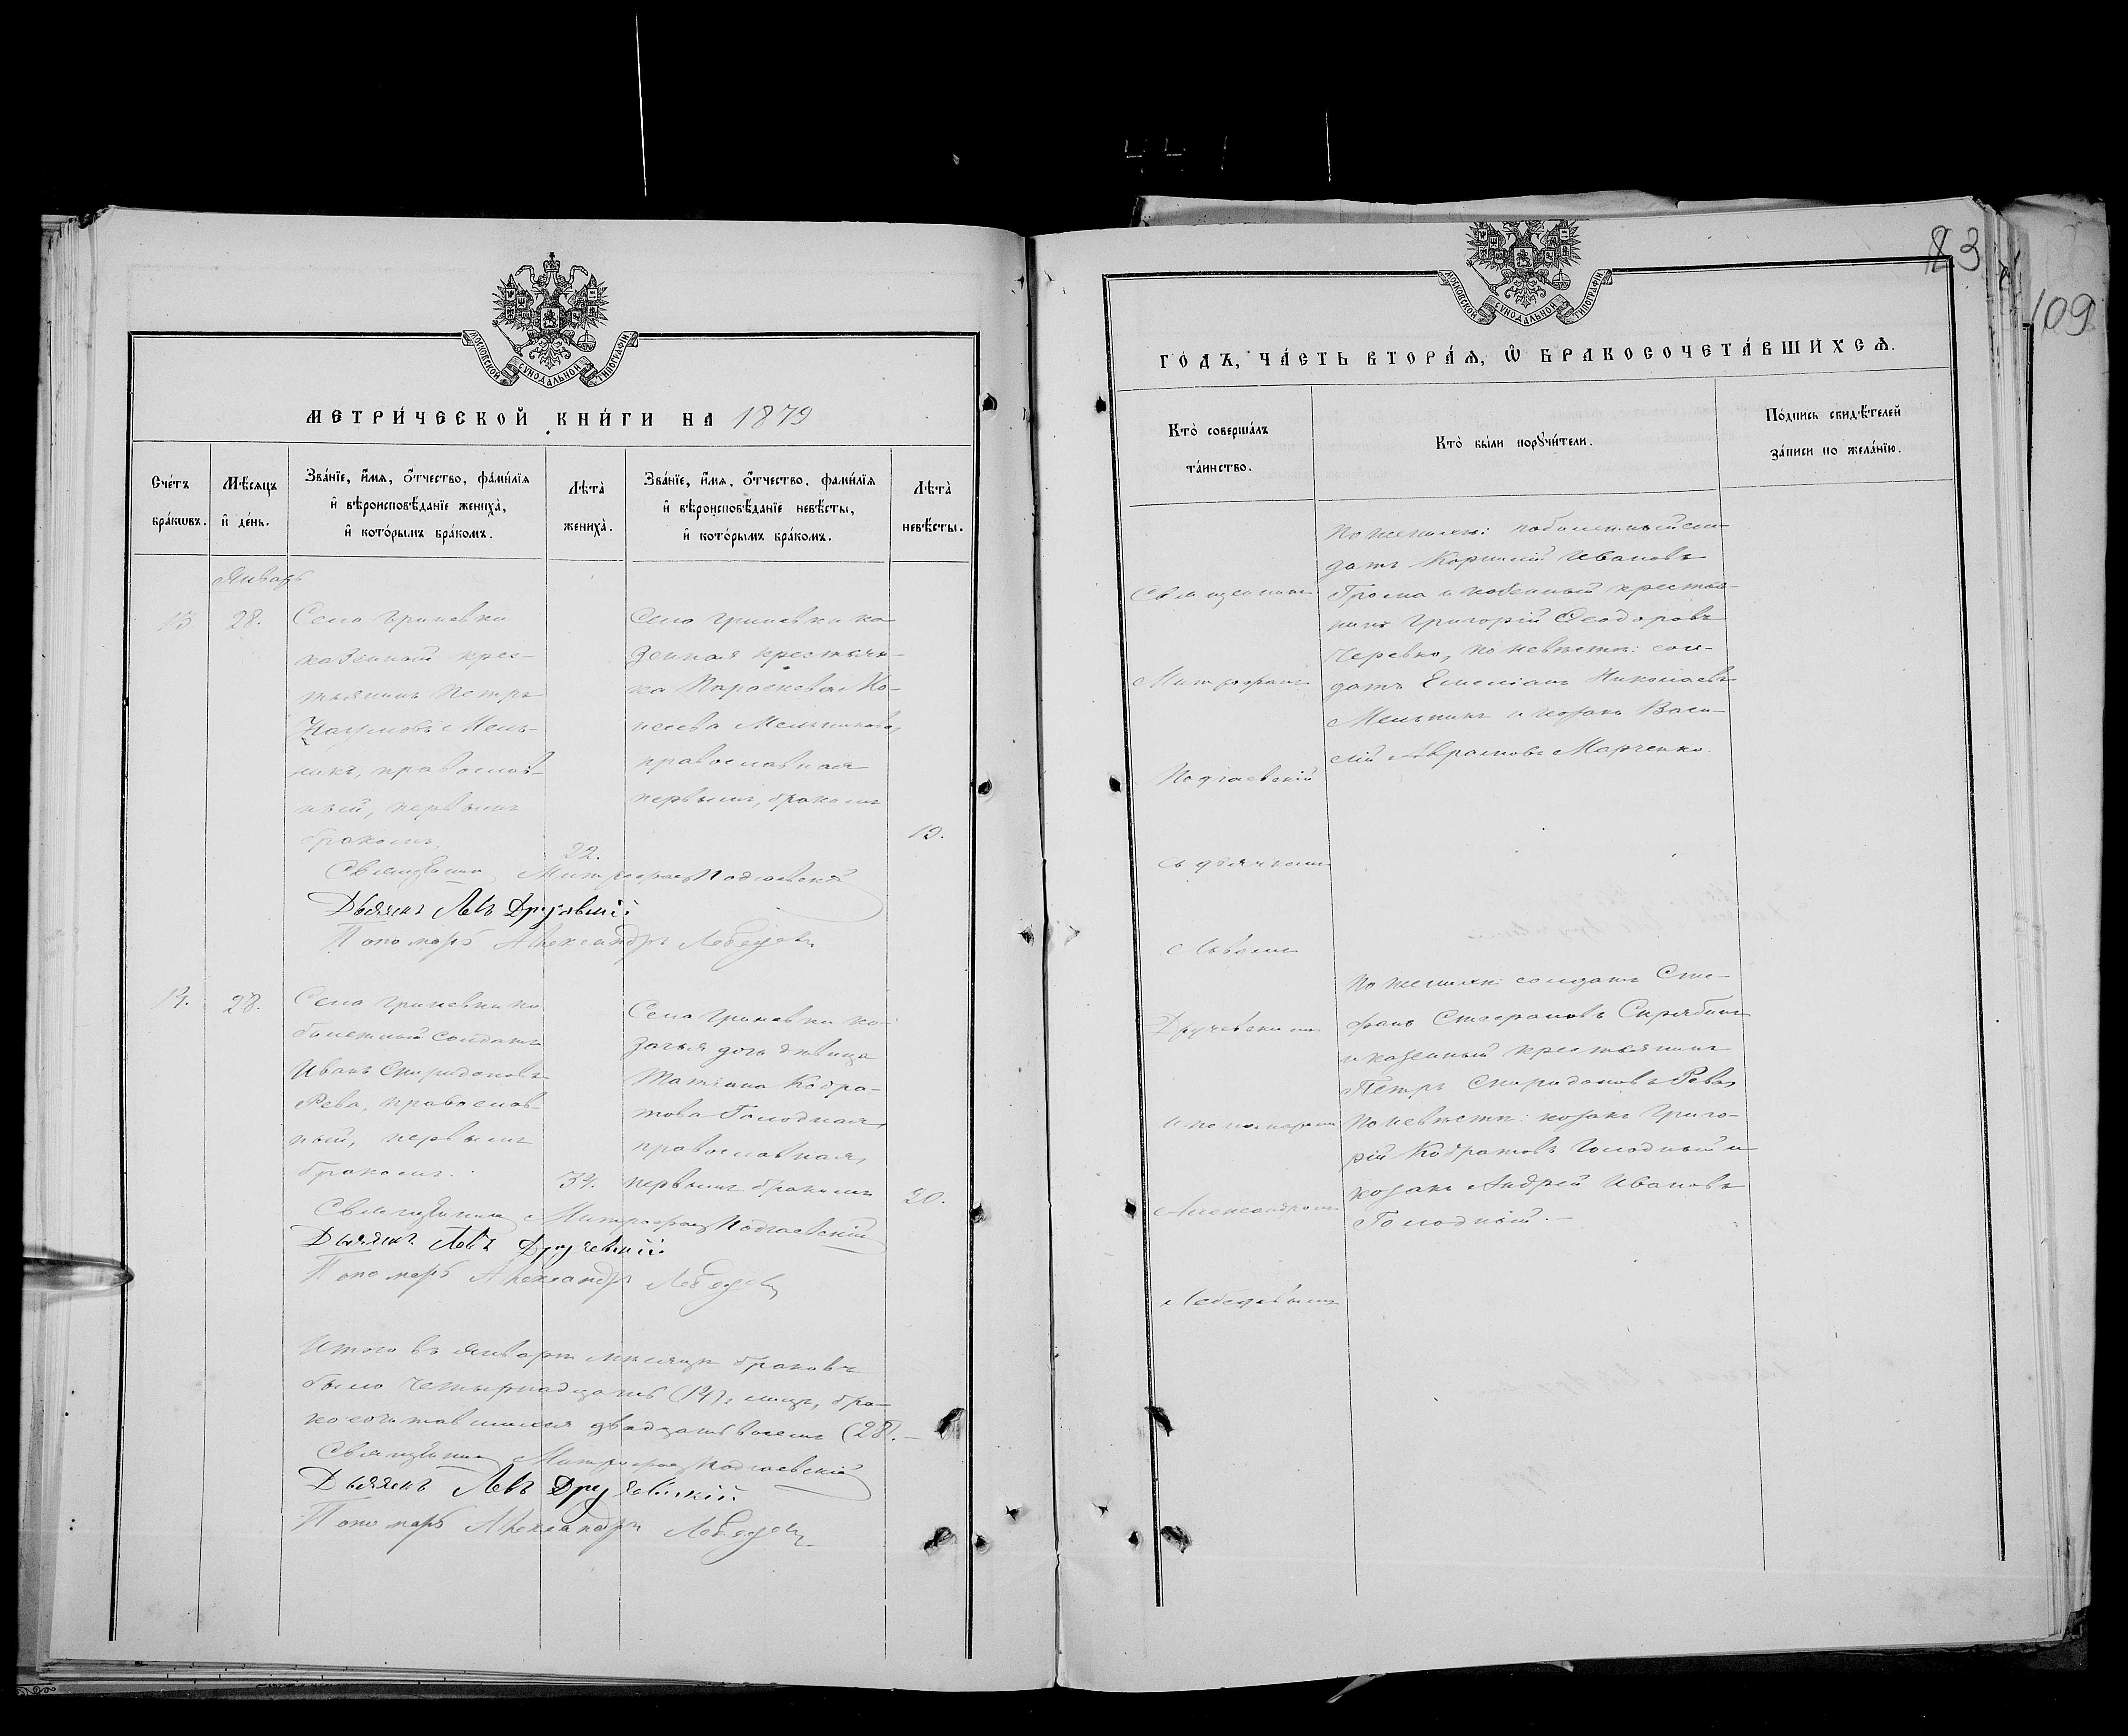 МОСКОВСКОЙ СѴНОДАЛЬНОЙ ТИПОГРАФІИ
МЕТРИ́ЧЕСКОЙ КНИ́ГИ НА 1879
Сче́тъ бра́кѡвъ.
Мѣ́сяцъ и҆ де́нь.
Зва́нїе, и҆́мя, ѻ҆́тчество, фами́лїя
и҆ вѣроисповѣ́данїе жениха̀,
и҆ кото́рымъ бра́комъ.
Лѣта̀ жениха̀.
Зва́нїе, и҆́мя, ѻ҆́тчество, фами́лїя
и҆ вѣроисповѣ́данїе невѣ́сты,
и҆ кото́рымъ бра́комъ.
Лѣта̀ невѣ́сты.
Январь
13
28.
Села Гриневки
казенный крес-
тьянинъ Петръ
Наумовъ Мель-
никъ, православ-
ный, первымъ
бракомъ,
22.
Села Гриневки ка
зенная крестьян-
ка Параскева
Мельникова,
православная
первымъ, бракомъ
19.
Священникъ Митрофанъ Подгаевскій
Дьячекъ Левъ Дручевскій
Пономарь Александръ Лебедевъ
14.
28.
Села Гриневки по
билетный солдатъ
Иванъ Спиридоновъ
Рева, православ-
ный, первымъ
бракомъ.
34.
Села Гриневки ко-
зачья дочь дѣвица
Татіана Кодра-
това Голодная,
православная,
первымъ бракомъ
20.
Священникъ Митрофанъ Подгаевскій
Дьячекъ Левъ Дручевскій
Пономарь Александръ Лебедевъ
Итого въ Январѣ мѣсяцѣ браковъ
было четырнадцать (14), лицъ, бра-
косочетавшихся двадцать восемь (28).
Священникъ Митрофанъ Подгаевскій
Дьячекъ Левъ Дручевскій
Пономарь Александръ Лебедевъ
83
109
МОСКОВСКОЙ СѴНОДАЛЬНОЙ ТИПОГРАФІИ
ГО́ДЪ, ЧА́СТЬ ВТОРА́Я, Ѡ҆ БРАКОСОЧЕТА́ВШИХСЯ.
Кто̀ соверша́лъ
та́инство.
Кто̀ бы́ли порꙋчи́тели.
По́дпись свидѣ́телей
за́писи по жела́нїю.
Священникъ
Митрофанъ
Подгаевскій
съ дьячкомъ
Львомъ
Дручевскимъ
и пономаремъ
Александромъ
Лебедевымъ
По женихѣ: побилетный сол-
датъ Корнилій Ивановъ
и казенный крестья-
нинъ Григорій Ѳеодоровъ
Черевко, по невѣстѣ: сол-
датъ Емеліанъ Николаевъ
Мельникъ и козакъ Васи-
лій Аврамовъ Марченко.
По женихѣ: солдатъ Сте-
фанъ Стефановъ Скрябинъ
и казенный крестьянинъ
Петръ Спиридоновъ Рева,
По невѣстѣ: козакъ Григо-
рій Кодратовъ Голодный и
козакъ Андрей Ивановъ
Голодный.